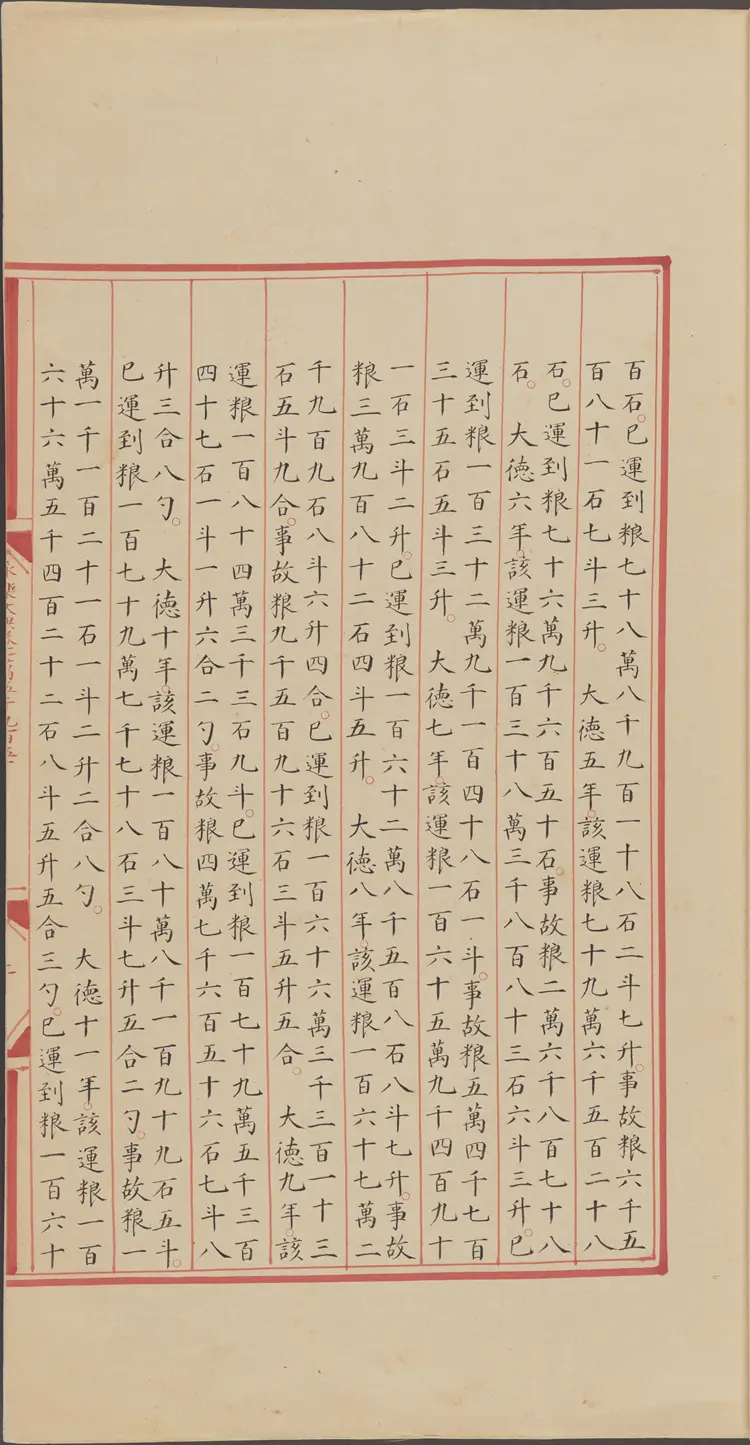 百石。已運到粮七十八萬八千九百一十八石二斗七升。事故粮六千五
百八十一石七斗三升。 大德五年。該運粮七十九萬六千五百二十八
石。已運到粮七十六萬九千六百五十石。事故粮二萬六千八百七十八
石。 大德六年。該運粮一百三十八萬三千八百八十三石六斗三升。已
運到粮一百三十二萬九千一百四十八石一斗。事故粮五萬四千七百
三十五石五斗三升。 大德七年。該運粮一百六十五萬九千四百九十
一石三斗二升。已運到粮一百六十二萬八千五百八石八斗七升。事故
粮三萬九百八十二石四斗五升。 大德八年。該運粮一百六十七萬二
千九百九石八斗六升四合。已運到粮一百六十六萬三千三百一十三
石五斗九合。事故粮九千五百九十六石三斗五升五合。 大德九年。該
運粮一百八十四萬三千三石九斗。已運到粮一百七十九萬五千三百
四十七石一斗一升六合二勺。事故粮四萬七千六百五十六石七斗八
升三合八勺。 大德十年。該運粮一百八十萬八千一百九十九石五斗。
已運到粮一百七十九萬七千七十八石三斗七升五合二勺。事故粮一
萬一千一百二十一石一斗二升二合八勺。 大德十一年。該運粮一百
六十六萬五千四百二十二石八斗五升五合三勺。已運到粮一百六十